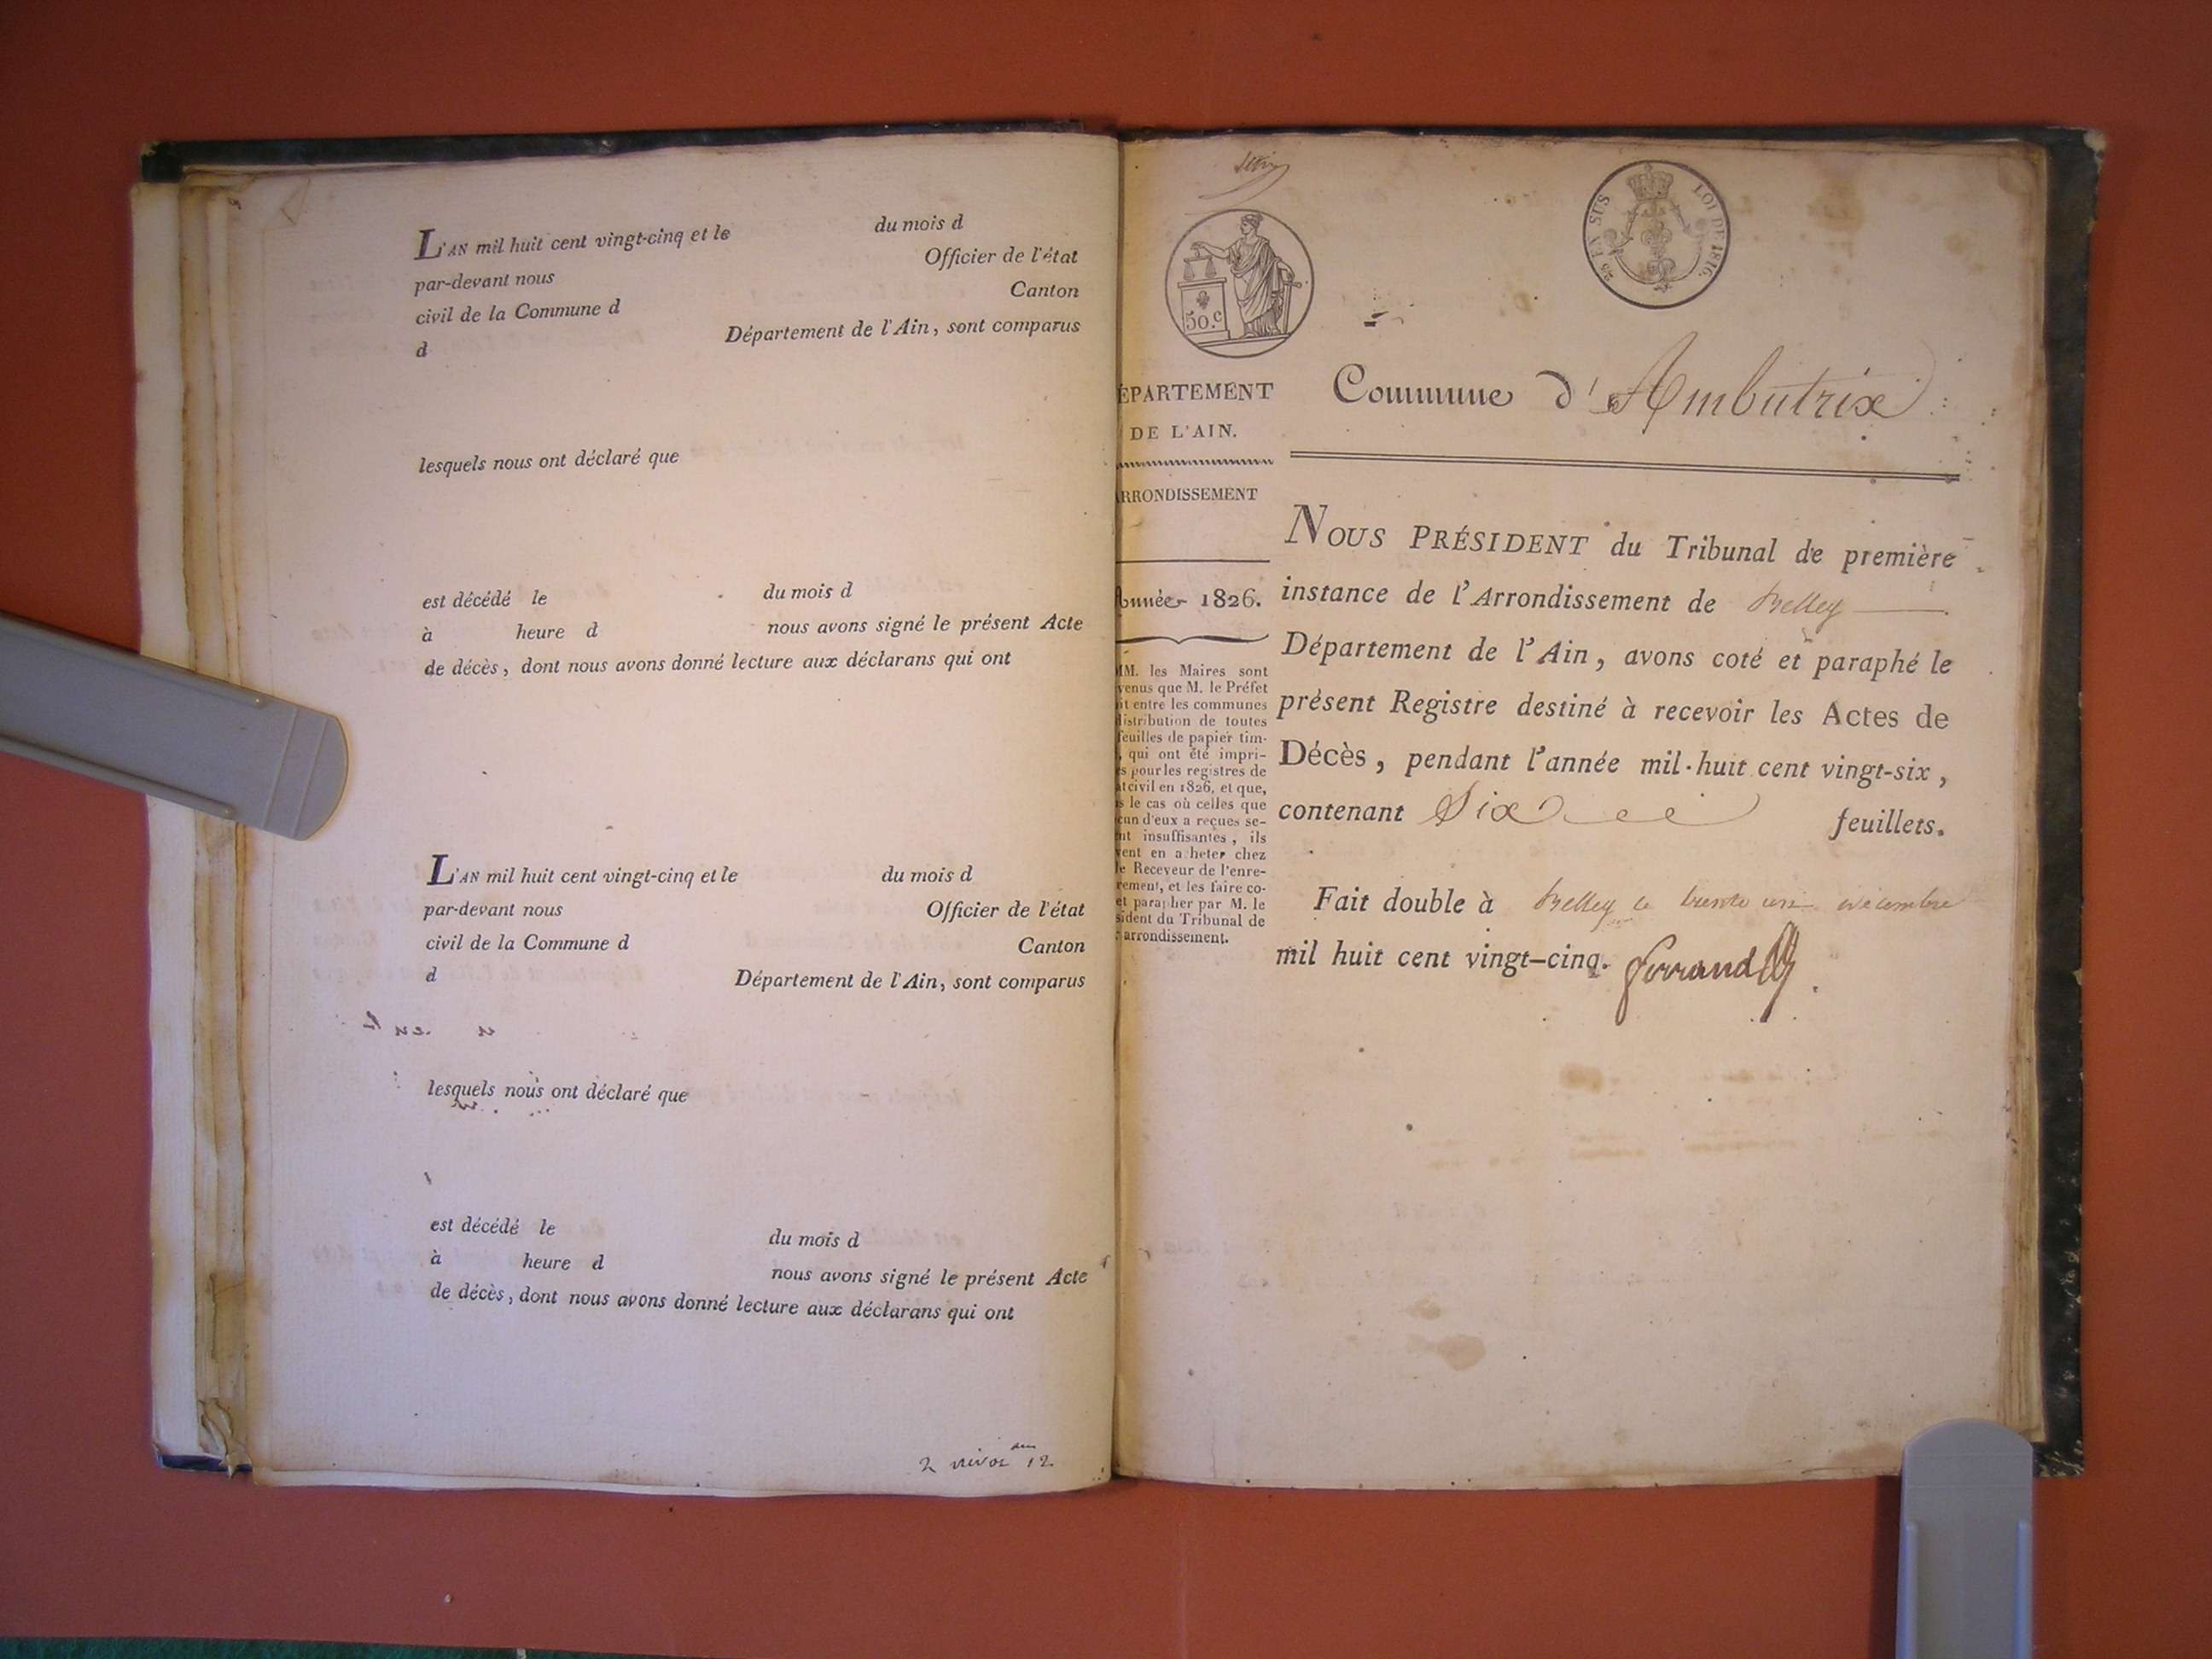 L'AN mil huit cent vingt-cinq et le du mois d
par-devant nous Officier de l'état
civil de la Commune d Canton
d Département de l'Ain, sont comparus
lesquels nous ont déclaré que
est décédé le du mois d
à heure d nous avons signé le présent Acte
de décès, dont nous avons donné lecture aux déclarans qui ont
L'AN mil huit cent vingt-cinq et le du mois d
par-devant nous Officier de l'état
civil de la Commune d Canton
d Département de l'Ain, sont comparus
lesquels nous ont déclaré que
est décédé le du mois d
à heure d nous avons signé le présent Acte
de décès, dont nous avons donné lecture aux déclarans qui ont
2 nivos an 12
50.c
25 EN SUS
LOI DE 1816.
ÉPARTEMENT
DE L'AIN.
RRONDISSEMENT
Année 1826.
MM. les Maires sont
venus que M. le Préfet
it entre les communes
distribution de toutes
feuilles de papier tim-
, qui ont été impri-
s pour les registres de
at civil en 1826, et que,
s le cas où celles que
cun d'eux a reçues se-
nt insuffisantes, ils
vent en acheter chez
le Receveur de l'enre-
rement, et les faire co-
et parapher par M. le
sident du Tribunal de
arrondissement.
Commune d'Ambutrix
NOUS PRÉSIDENT du Tribunal de première
instance de l'Arrondissement de Belley
Département de l'Ain, avons coté et paraphé le
présent Registre destiné à recevoir les Actes de
Décès, pendant l'année mil-huit cent vingt-six,
contenant Six feuillets.
Fait double à Belley ce trente un décembre
mil huit cent vingt-cinq.